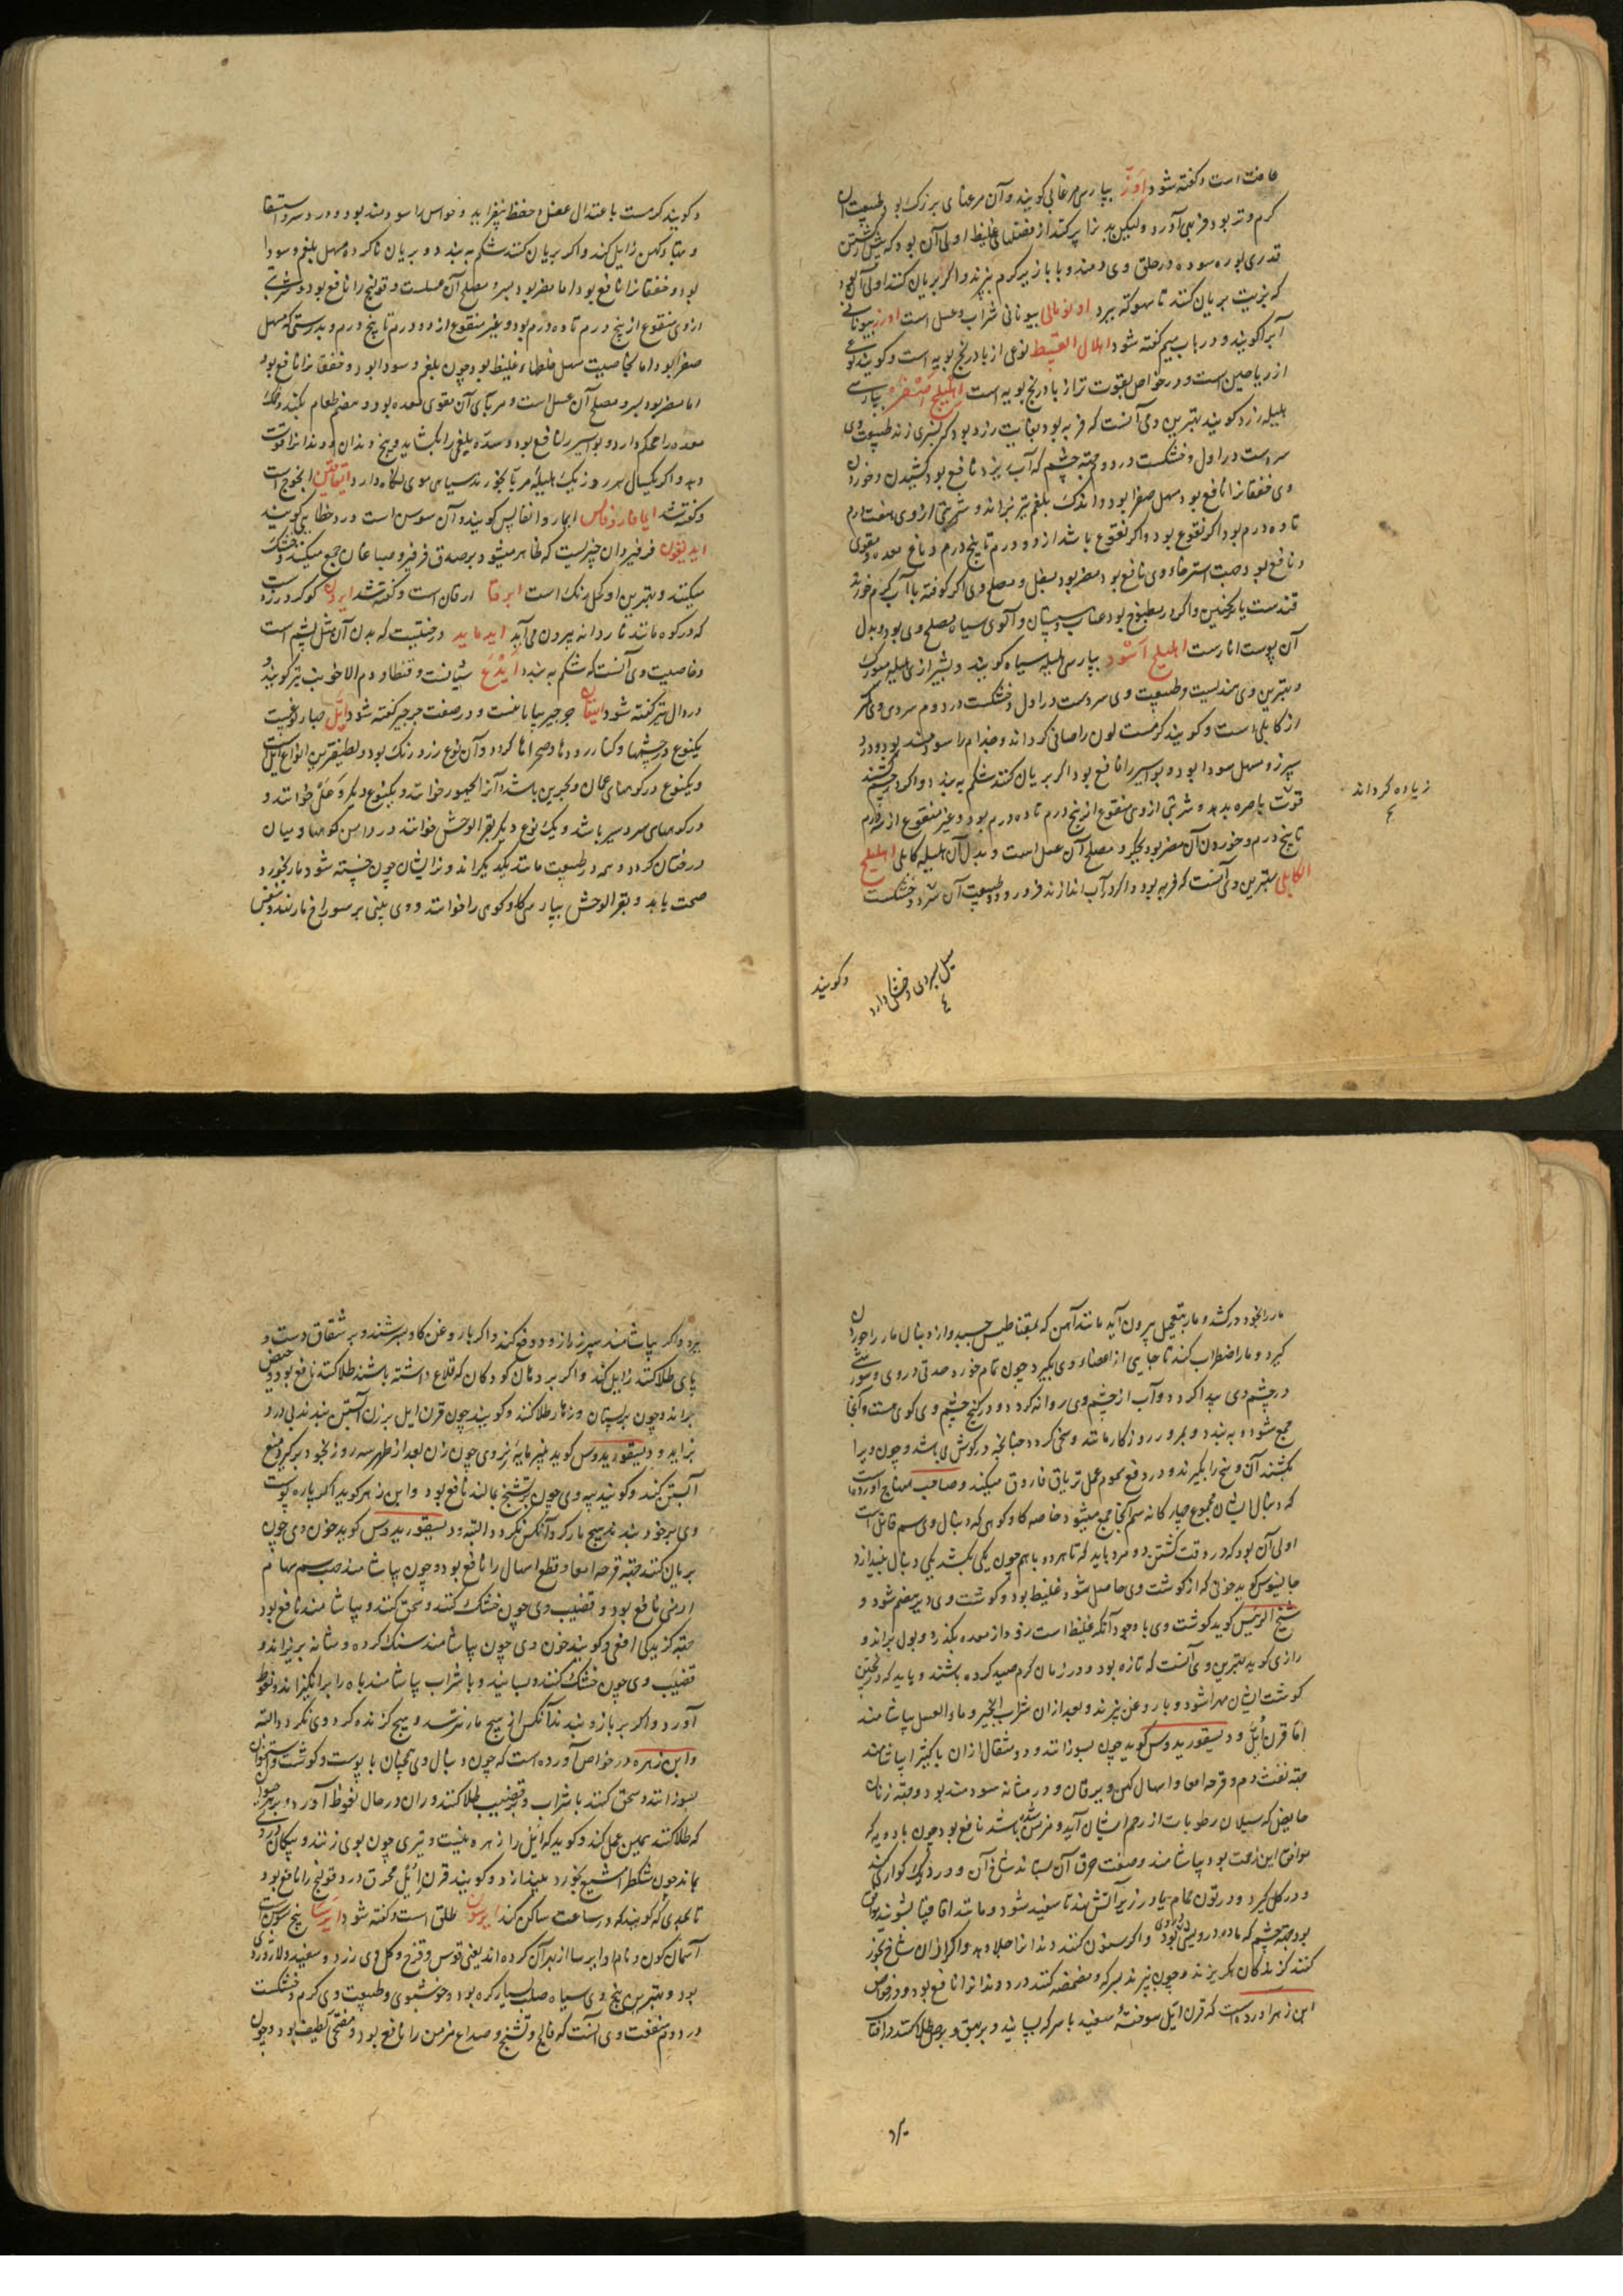 عافث است و کفته شود اوز بپارسی مرغابی کویند و آن مرغی بزرک بود و طبیعت آن
کرم و تر بود فربهی آورد ولیکن بدن را پر کند از فضلهای غلیظ اولی آن بود که پیش از کشتن
قدری بوره سوده در حلق وی دمند و با ابازیر کرم بپزند و اکر بریان کنند اولی آن بود
که بزیت بریان کنند تا سهوکه ببرد اونومالی بیونانی شراب و عسل است اورز بیونانی
آبرا کویند و در باب میم کفته شود اهلال القسط نوعی از بادرنج بویه است و کویند نوعی
از ریاحین است و در خواص بقوت تر از بادرنج بویه است اهلیلج اصفر بپارسی
هلیله زرد کویند بهترین وی آنست که فربه بود بغایت زرد بود که بسبزی زند طبیعت وی
سردست در اول و خشکست در دوم جهة چشم که آب ریزد نافع بود کشیدن و خوردن
وی خفقانرا نافع بود و مسهل صفرا بود و اندک بلغم نیز براند و شربتی از وی هفت درم
تا ده درم بود اکر نقوع بود و اکر نقوع باشد از دو درم تا پنج درم دباغ معده و مقوی
و نافع بود و جهت استرخاء وی نافع بود و مضر بود بسفل و مصلح وی اکر کوفته با آب کرم خورند
قندست یا ترنجبین و اکر در مطبوخ بود عناب و سپستان و آلوی سیاه مصلح وی بود و بدل
آن پوست انارست اهلیلج اسود بپارسی هلیله سیاه کویند و شیرازی هلیله مویزک
و بهترین وی هندیست و طبیعت وی سردست در اول و خشکست در دوم سردی وی کمتر
از کابلی است و کویند کرمست لون را صافی کرداند و جذام را سودمند بود و درد
سپرز و مسهل سودا بود و بواسیر را نافع بود اکر بریان کنند شکم به بندد و اکر در چشم کشند
قوت باصره بدهد و شربتی از وی منقوع از پنج درم تا ده درم بود و غیر منقوع از سه درم
تا پنج درم و خوردن آن مضر بود بجکر و مصلح آن عسل است و بدل آن هلیله کابلی اهلیلج
الکابلی بهترین وی آنست که فربه بود و اکر در آب اندازند فرو رود و طبیعت آن سرد و خشکست
زیاده کرداند
میل بسردی و خشکی دارد
وکویند
و کویند کرمست باعتدال عقل و حفظ بیفزاید و حواس را سودمند بود و درد سر و استسقا
و تبهاء کهن زایل کند و اکر بریان کنند شکم به بندد و بریان ناکرده مسهل بلغم و سودا
بود و خفقانرا نافع بود اما مضر بود بسر و مصلح آن عسلست و قولنج را نافع بود و شربتی
از وی منقوع از پنج درم تا ده درم بود و غیر منقوع از دو درم تا پنج درم و بدرستی که مسهل
صفرا بود اما بخاصیت مسهل خلطهاء غلیظ بود چون بلغم و سودا بود و خفقانرا نافع بود
اما مضر بود بسر و مصلح آن عسل است و مربای آن مقوی معده بود و هضم طعام بکند و خمل
معده را محکم دارد و بواسیر را نافع بود و سده بلغمی را بکشاید و بیخ دندان و دندانرا قوت
دهد و اکر یکسال هر روز یک هلیله مربا بخورند سیاهی موی نکاه دارد ایقاقتین انجوج است
و کفته شد ایافاروفاس ایهار وانفالس کویند و آن سوسن است و در خطایی کویند
ایدیقون فرفیر و آن چیزیست که ظاهر میشود بر صدف فرفیر و صباغان جمع میکنند و خشک
میکنند و بهترین او کحلی رنک است ایرقا ارقان است و کفته شد ایرد کوکرد زردست
که در کوه مانند ناردانه بیرون می آید ایدماید درختیست که بدن آن مثل پشم است
و خاصیت وی آنست که شکم به بندد ایدع شیانست و قنطا و دم الاخوین نیز کویند و
در دال نیز کفته شود ایهقان جرجیر بیابانیست و در صفت جرجیر کفته شود ایل چهار نوعست
یکنوع در چشمها و کنار رودها و صحراها کردد و آن نوع زرد رنک بود و لطیفترین انواع ایل است
و یکنوع در کوههای عمان و بحرین باشد و آنرا یحمور خوانند و یکنوع دیکر وعل خوانند و
در کوههای سردسیر باشد و یک نوع دیکر بقر الوحش خوانند در دامن کوهها و میان
درختان کردد و همه در طبیعت مانند یکدیکراند و زایشان چون خسته شود مار بخورد و
صحت یابد و بقر الوحش بپارسی کاو کوهی را خوانند و وی بینی بر سوراخ مار نهد و بنفس
مار را بخود درکشد و مار بتعجیل بیرون آید مانند آهن که بمقناطیس چسبد و از دنبال مار را خوردن
کیرد و مار اضطراب کند تا جایی از اعضاء وی بکیرد چون تمام خورد حدتی در وی و سوزشی
در چشم وی پیدا کردد و آب از چشم وی روانه کردد و در کنج چشم وی کوی هست و آنجا
جمع شود و به بندد و بمرور روزکار ماند و سخن کردد چنانچه در کوش می باشد و چون ویرا
بکشند آن وسخ را بکیرند و در دفع سموم عمل تریاق فاروق میکند و صاحب منهاج آورده است
که دنبال ایشان مجموع چهارکانه سم آنجا جمع میشود خاصه کاو کوهی که دنبال وی سم قاتل است
اولی آن بود که در وقت کشتن دو مرد باید که تا هر دو باهم چون یکی بکشد یکی دنبال بیندازد
جالینوس کوید خونی که از کوشت وی حاصل شود غلیظ بود و کوشت وی دیر هضم شود و
شیخ الرئیس کوید کوشت وی با وجود آنکه غلیظ است زود از معده بکذرد و بول براند و
رازی کوید بهترین وی آنست که تازه بود و در زمان کرم صید کرده باشند و باید که در پختن
کوشت ایشان مهرا شود و با روغن پزند و بعد از آن شراب انجیر و ماء العسل بیاشامند
اما قرن ایل و دیسقوریدوس کوید چون بسوزانند و دو مثقال از آن با کثیرا بیاشامند
جهة نفث دم و قرحه امعا و اسهال کهن و یرقان و درد مثانه سودمند بود و جهة زنان
حایض که سیلان رطوبات از رحم ایشان آید و مزمن شده باشد نافع بود چون با دویه که
موافق این زحمت بود بیاشامند و صفت حرق آن بستاند شاخ آن و در دیک کواری کنند
و در کل کیرد و در تون حمام یا در زیر آتش نهد تا سفید شود و مانند اقاقیا بشویند موافق
بود جهة چشم که ماده در وی ریزد و اکر سنون کنند دندانرا جلا دهد و اکر از آن شاخ بخور
کنند کزندکان بکریزند و چون بپزند بسرکه و مضمضه کنند درد دندانرا نافع بود و در خواص
ابن زهر آورده است که قرن ایل سوخته سفید با سرکه بسایند و بر بهق و برص طلا کنند در آفتاب
ببرد و اکر بیاشامند سپرز را زود دفع کند و اکر با روغن کاو بسرشند و بر شقاق دست و
پای طلا کنند زایل کند و اکر بر دهان کودکان که قلاع داشته باشند طلا کنند نافع بود و حیض
براند و چون بر پستان و زهار طلا کنند و کویند چون قرن ایل بر زن آبستن بندند بی درد
بزاید و دیسقوریدوس کوید پنیر مایه بزوی چون زن بعد از طهر سه روز بخود بر کیرد منع
آبستنی کند و کویند پیه وی چون بر تشنج مالند نافع بود و ابن زهر کوید اکر پاره پوست
وی بر خود بندند هیچ مار کرد آنکس نکردد البته و دیسقوریدوس کوید خون وی چون
بریان کنند جهة قرحه امعا و قطع اسهال را نافع بود و چون بیاشامند جهة سم سهام
ارمنی نافع بود و قضیب وی چون خشک کنند و سحق کنند و بیاشامند نافع بود
جهة کزیدکی افعی و کویند خون وی چون بیاشامند سنک کرده و مثانه بریزاند و
قضیب وی چون خشک کنند و بسایند و با شراب بیاشامند باه را برانکیزاند و نعوظ
آورد و اکر بر بازو بندند آنکس از هیچ مار نترسد و هیچ کزنده کرد وی نکردد البته
و ابن زهر در خواص آورده است که چون دنبال وی همچنان با پوست و کوشت و استخوان
بسوزانند و سحق کنند با شراب و بر قضیب طلا کنند و ران در حال نعوظ آورد و بر هر حیوانی
که طلا کنند همین عمل کند و کوید که ایل را زهره نیست و تیری چون بوی زنند و پیکان در وی
بماند چون مشکطرامشیع بخورد بیندازد و کویند قرن ایل محرق درد قولنج را نافع بود
تا بحدی که کویند که در ساعت ساکن کند ایرسون طلق است و کفته شود ایرسا بیخ سوسن
آسمان کون و نام او ایرسا از بهر آن کرده اند یعنی قوس قزح و کل وی زرد و سفید و لازوردی
بود و بهترین بیخ وی سیاه صلب بسیار کره بود و خوشبوی و طبیعت وی کرم و خشکست
در دوم منفعت وی آنست که فالج و تشنج و صداع مزمن را نافع بود و مفتح لطیف بود و چون